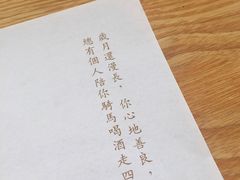 歲月還漫長，你心地善良，
總有個人陪你騎馬喝酒走四